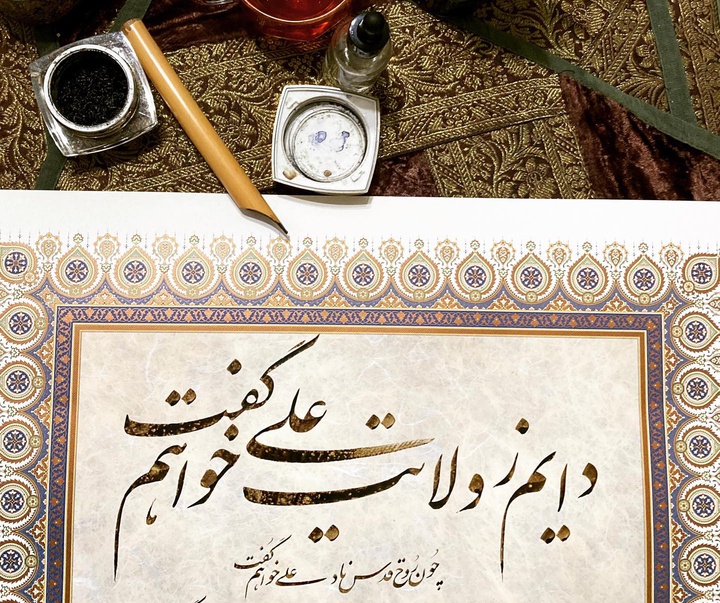 دایم ز ولایت علی خواهم گفت
چون روح قدس ناد علی خواهم گفت